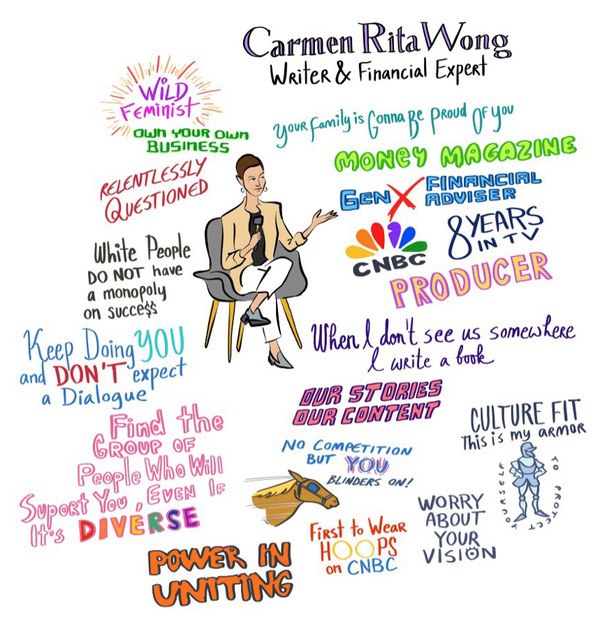 Carmen Rita Wong
Writer & Financial Expert
WiLD
Feminist
OWN YOUR OWN
BUSINESS
your family is Gonna Be Proud Of you
MONEY MAGAZINE
RELENTLESSLY
QUESTIONED
GEN X FINANCIAL
ADVISER
CNBC
8 YEARS
IN TV
PRODUCER
White People
DO NOT have
a monopoly
on succe$$
When I don't see us somewhere
I write a book
Keep Doing YOU
and DON'T expect
a Dialogue
OUR STORIES
OUR CONTENT
CULTURE FIT
This is my ARMOR
YOURSELF
TO PROTECT
Find the
GROUP OF
People Who Will
Suport You, EVEN IF
It's DIVERSE
NO COMPETITION
BUT YOU
BLINDERS ON!
First to Wear
HOOPS
on CNBC
WORRY
ABOUT
YOUR
VISION
POWER IN
UNITING